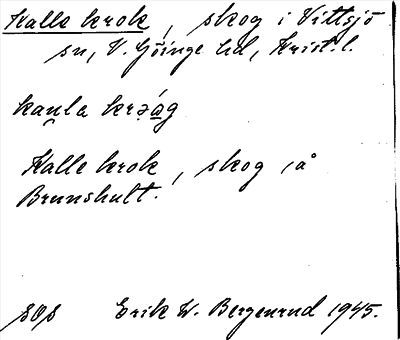 Kalle krok, skog i Vittsjö
sn, V. Göinge hd, Krist. l.
Kalle krok, skog på
Brunshult.
Erik W. Bergenrud 1945.